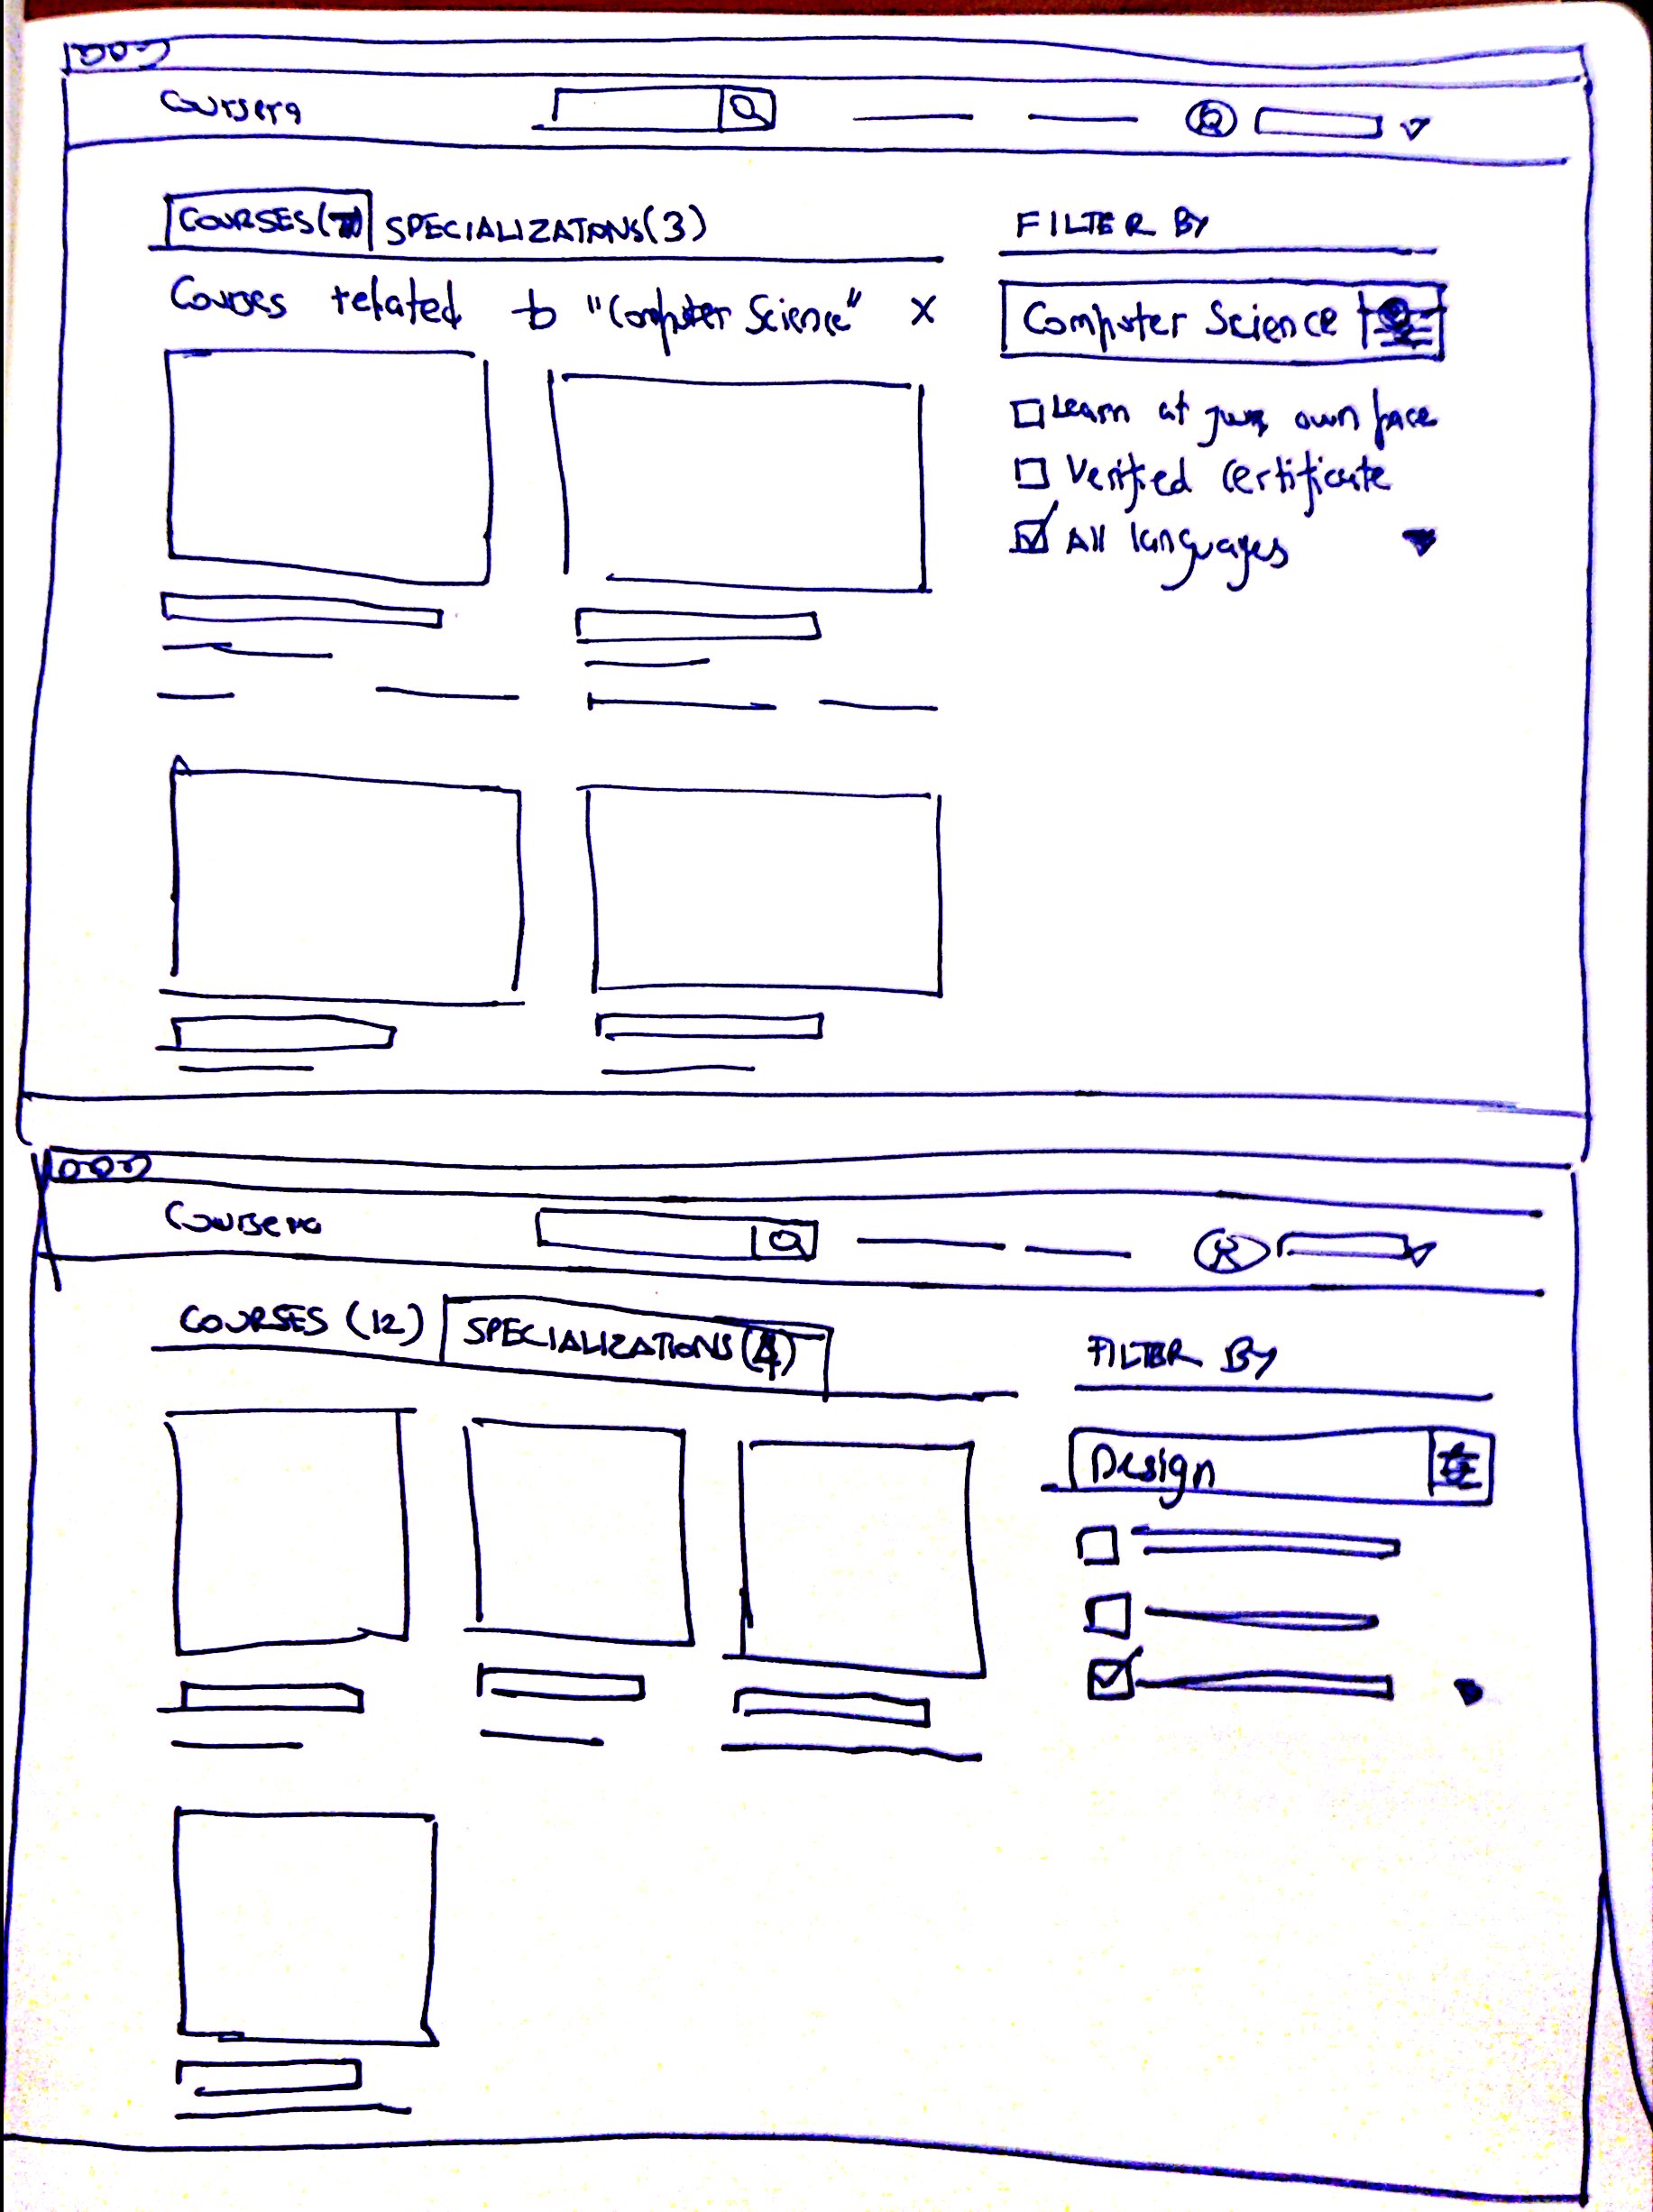 Coursera
COURSES( SPECIALIZATIONS(3)
FILTER BY
Courses related to "Computer Science" X
Computer Science
Learn at your own pace
Verified certificate
All languages
Coursera
COURSES (12) SPECIALIZATIONS(4)
FILTER BY
Design